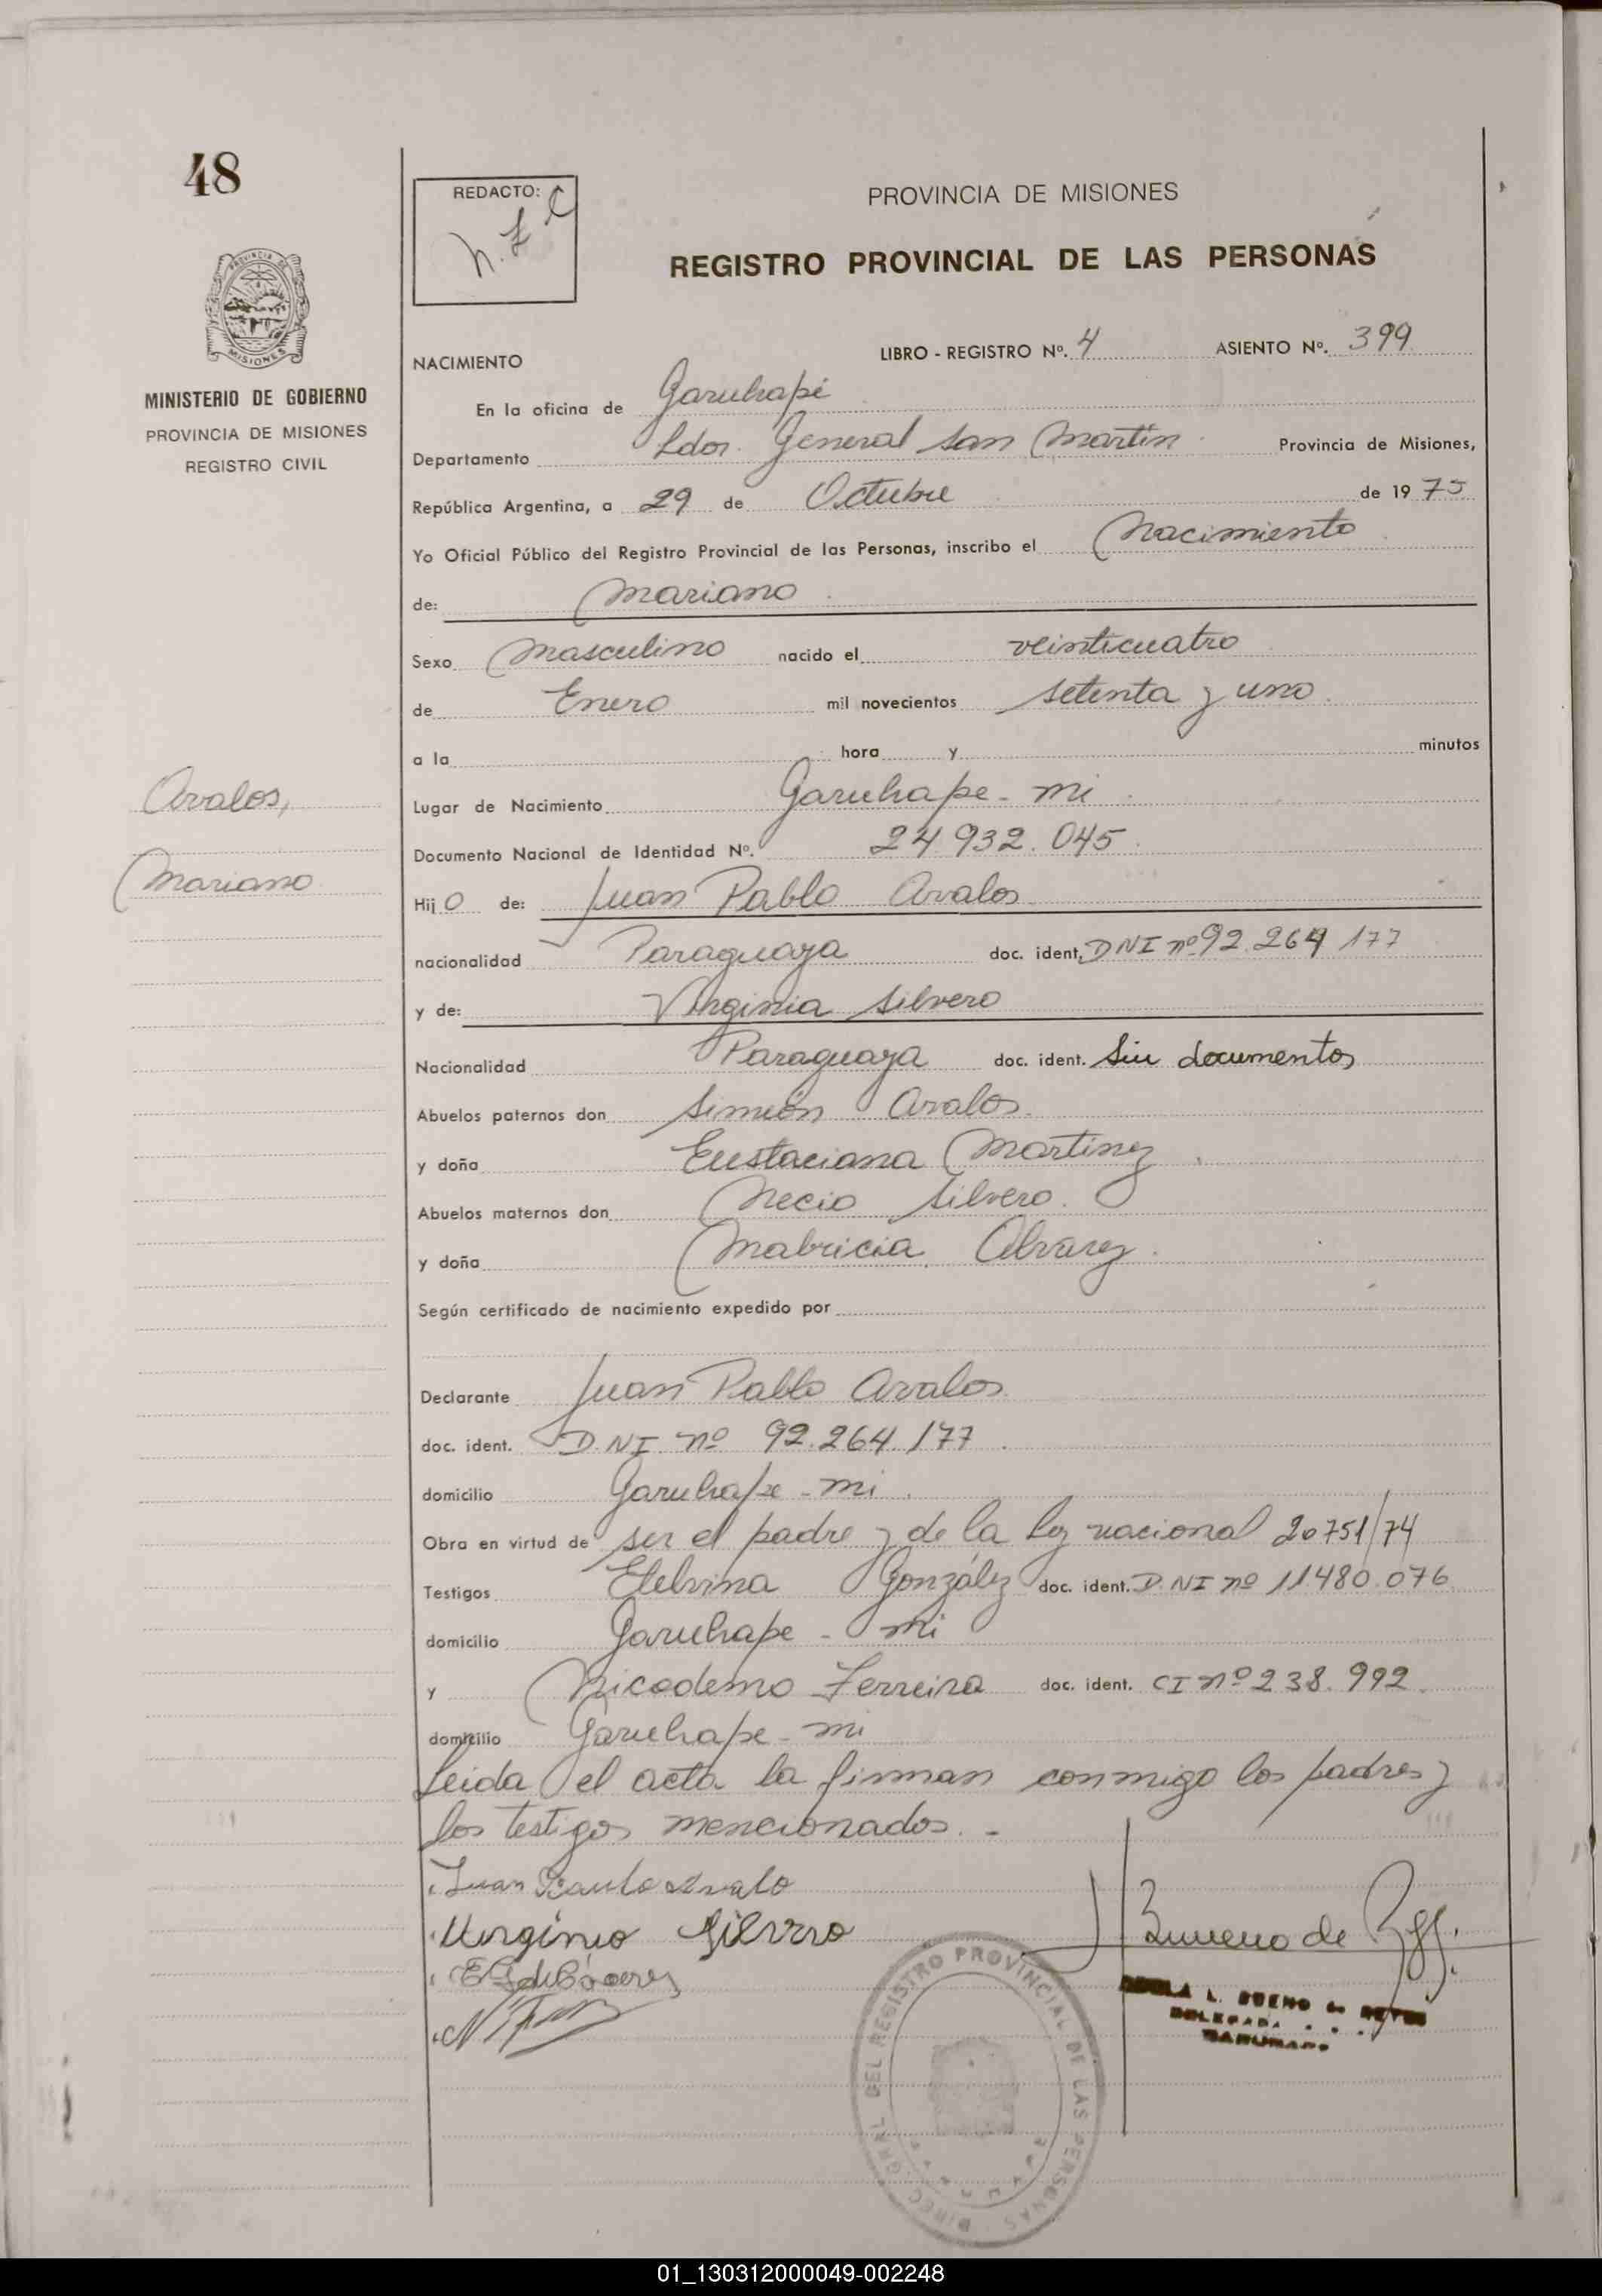 48
REDACTO:
PROVINCIA DE MISIONES
REGISTRO PROVINCIAL DE LAS PERSONAS
MINISTERIO DE GOBIERNO
PROVINCIA DE MISIONES
REGISTRO CIVIL
NACIMIENTO LIBRO - REGISTRO Nº. 4 ASIENTO Nº. 399
En la oficina de Garuhapé
Departamento Ldor. General San Martín Provincia de Misiones,
República Argentina, a 29 de Octubre de 1975
Yo Oficial Público del Registro Provincial de las Personas, inscribo el Nacimiento
de: Mariano
Sexo Masculino nacido el veinticuatro
de Enero mil novecientos setenta y uno
a la hora y minutos
Avalos,
Mariano
Lugar de Nacimiento Garuhape - mi
Documento Nacional de Identidad Nº. 24 932.045
Hijo de: Juan Pablo Avalos
nacionalidad Paraguaya doc. ident. DNI nº 92.264 177
y de: Virginia Silvero
Nacionalidad Paraguaya doc. ident. Sin documentos
Abuelos paternos don Simeón Avalos
y doña Eustaciana Martinez
Abuelos maternos don Necio Silvero.
y doña Mabricia Alvarez.
Según certificado de nacimiento expedido por
Declarante Juan Pablo Avalos
doc. ident. D.NI nº 92.264.177
domicilio Garuhape - mi.
Obra en virtud de ser el padre y de la ley nacional 20751/74
Testigos Etelvina González doc. ident. D.NI nº 11.480.076
domicilio Garuhape - mi
y Nicodemo Ferreira doc. ident. CI nº 238.992.
domicilio Garuhape - mi
Leida el acta la firman conmigo los padres y
los testigos mencionados. -
Juan Paulo Avalo
Virginio Silvero
Bueno de
L. BUENO de REYES
DELEGADA
GARUHAPE
DIREC. GRAL. DEL REGISTRO PROVINCIAL DE LAS PERSONAS
01_130312000049-002248